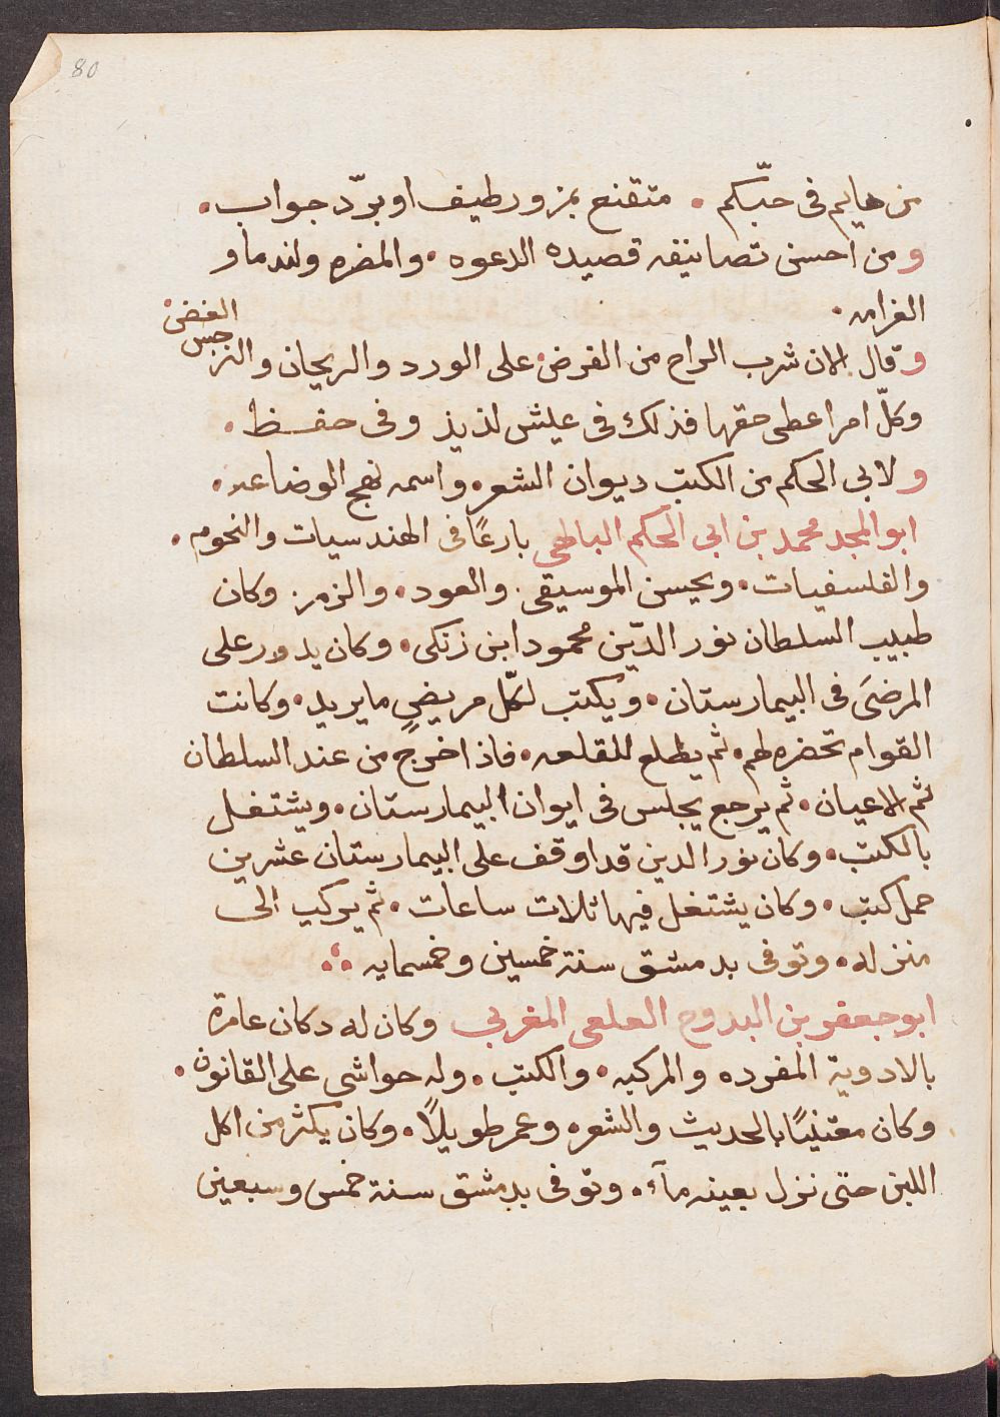 80
من هايم فى حبّكم . متقنع بمزور طيف او بردّ جواب .
ومن احسن تصانيفه قصيده الدعوه . والمضره ولندما و
الغرامه .
الغض .
وقال الان شرب الراح من الفرض . على الورد والريحان والنرجس
وكلّ امرا عطى حقها فذلك فى عيش لذيذ وفى حفظ .
ولابى الحكم من الكتب ديوان الشعر . واسمه نهج الوضاعه .
ابو المجد محمد بن ابى الحكم الباهلى بارعًا فى الهندسيات والنجوم .
والفلسفيات . ويحسن الموسيقى . والعود . والزمر . وكان
طبيب السلطان نور الدّين محمود ابن زنكى . وكان يدور على
المرضَى فى البيمارستان . ويكتب لكلّ مريضٍ ما يريد . وكانت
القوام تحضره لهم . ثم يطلع للقلعه . فاذا خرج من عند السلطان
ثم الاعيان . ثم يرجع يجلس فى ايوان البيمارستان . ويشتغل
بالكتب . وكان نور الدين قد اوقف على البيمارستان عشرين
حمل كتب . وكان يشتغل فيها ثلاث ساعات . ثم يركب الى
منزله . وتوفى بدمشق سنة خمسين وخمسمايه .
ابو جعفر بن البدوح العلعى المغربى وكان له دكان عامرة
بالادوية المفرده والمركبه . والكتب . وله حواشى على القانون .
وكان معتنيًا بالحديث والشعر . وعمر طويلًا . وكان يكثر من اكل
اللبن حتى نزل بعينه مآء . وتوفى بدمشق سنة خمس وسبعين